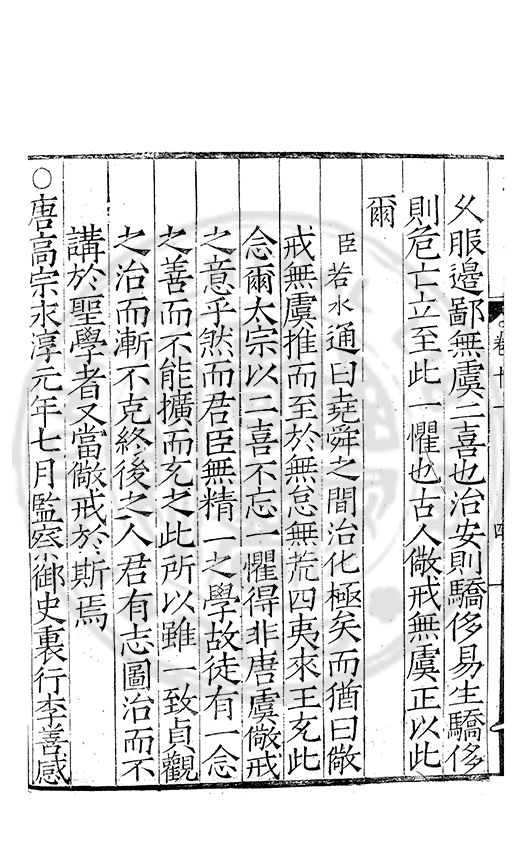 乆服邊鄙無虞二喜也治安則驕侈易生驕侈
則危亡立至此一懼也古人儆戒無虞正以此
爾
臣若水通曰堯舜之間治化極矣而猶曰儆
戒無虞推而至於無怠無荒四夷來王充此
念爾太宗以二喜不忘一懼得非唐虞儆戒
之意乎然而君臣無精一之學故徒有一念
之善而不能擴而充之此所以雖一致貞觀
之治而漸不克終後之人君有志圖治而不
講於聖學者又當儆戒於斯焉
○唐高宗永淳元年七月監察御史裏行李善感
卷十一
四